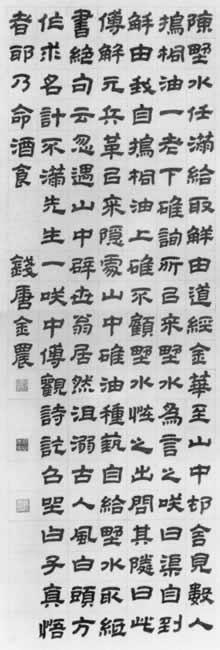 陳埜水任滿給取解由道經金華至山中邨舍見數人
搗桐油一老下碓詢所㠯來埜水為言之咲曰渠自到
解由我自搗桐油上碓不顧埜水怪之出問其隣曰此
傅解元兵革㠯來隱山中碓油種蓺自給埜水取紙
書絕句云忽遇山中辟世翁居然沮溺古人風白頭方
作求名計不滿先生一咲中傅觀詩訖召坐曰子真悟
者耶乃命酒食 錢唐金農